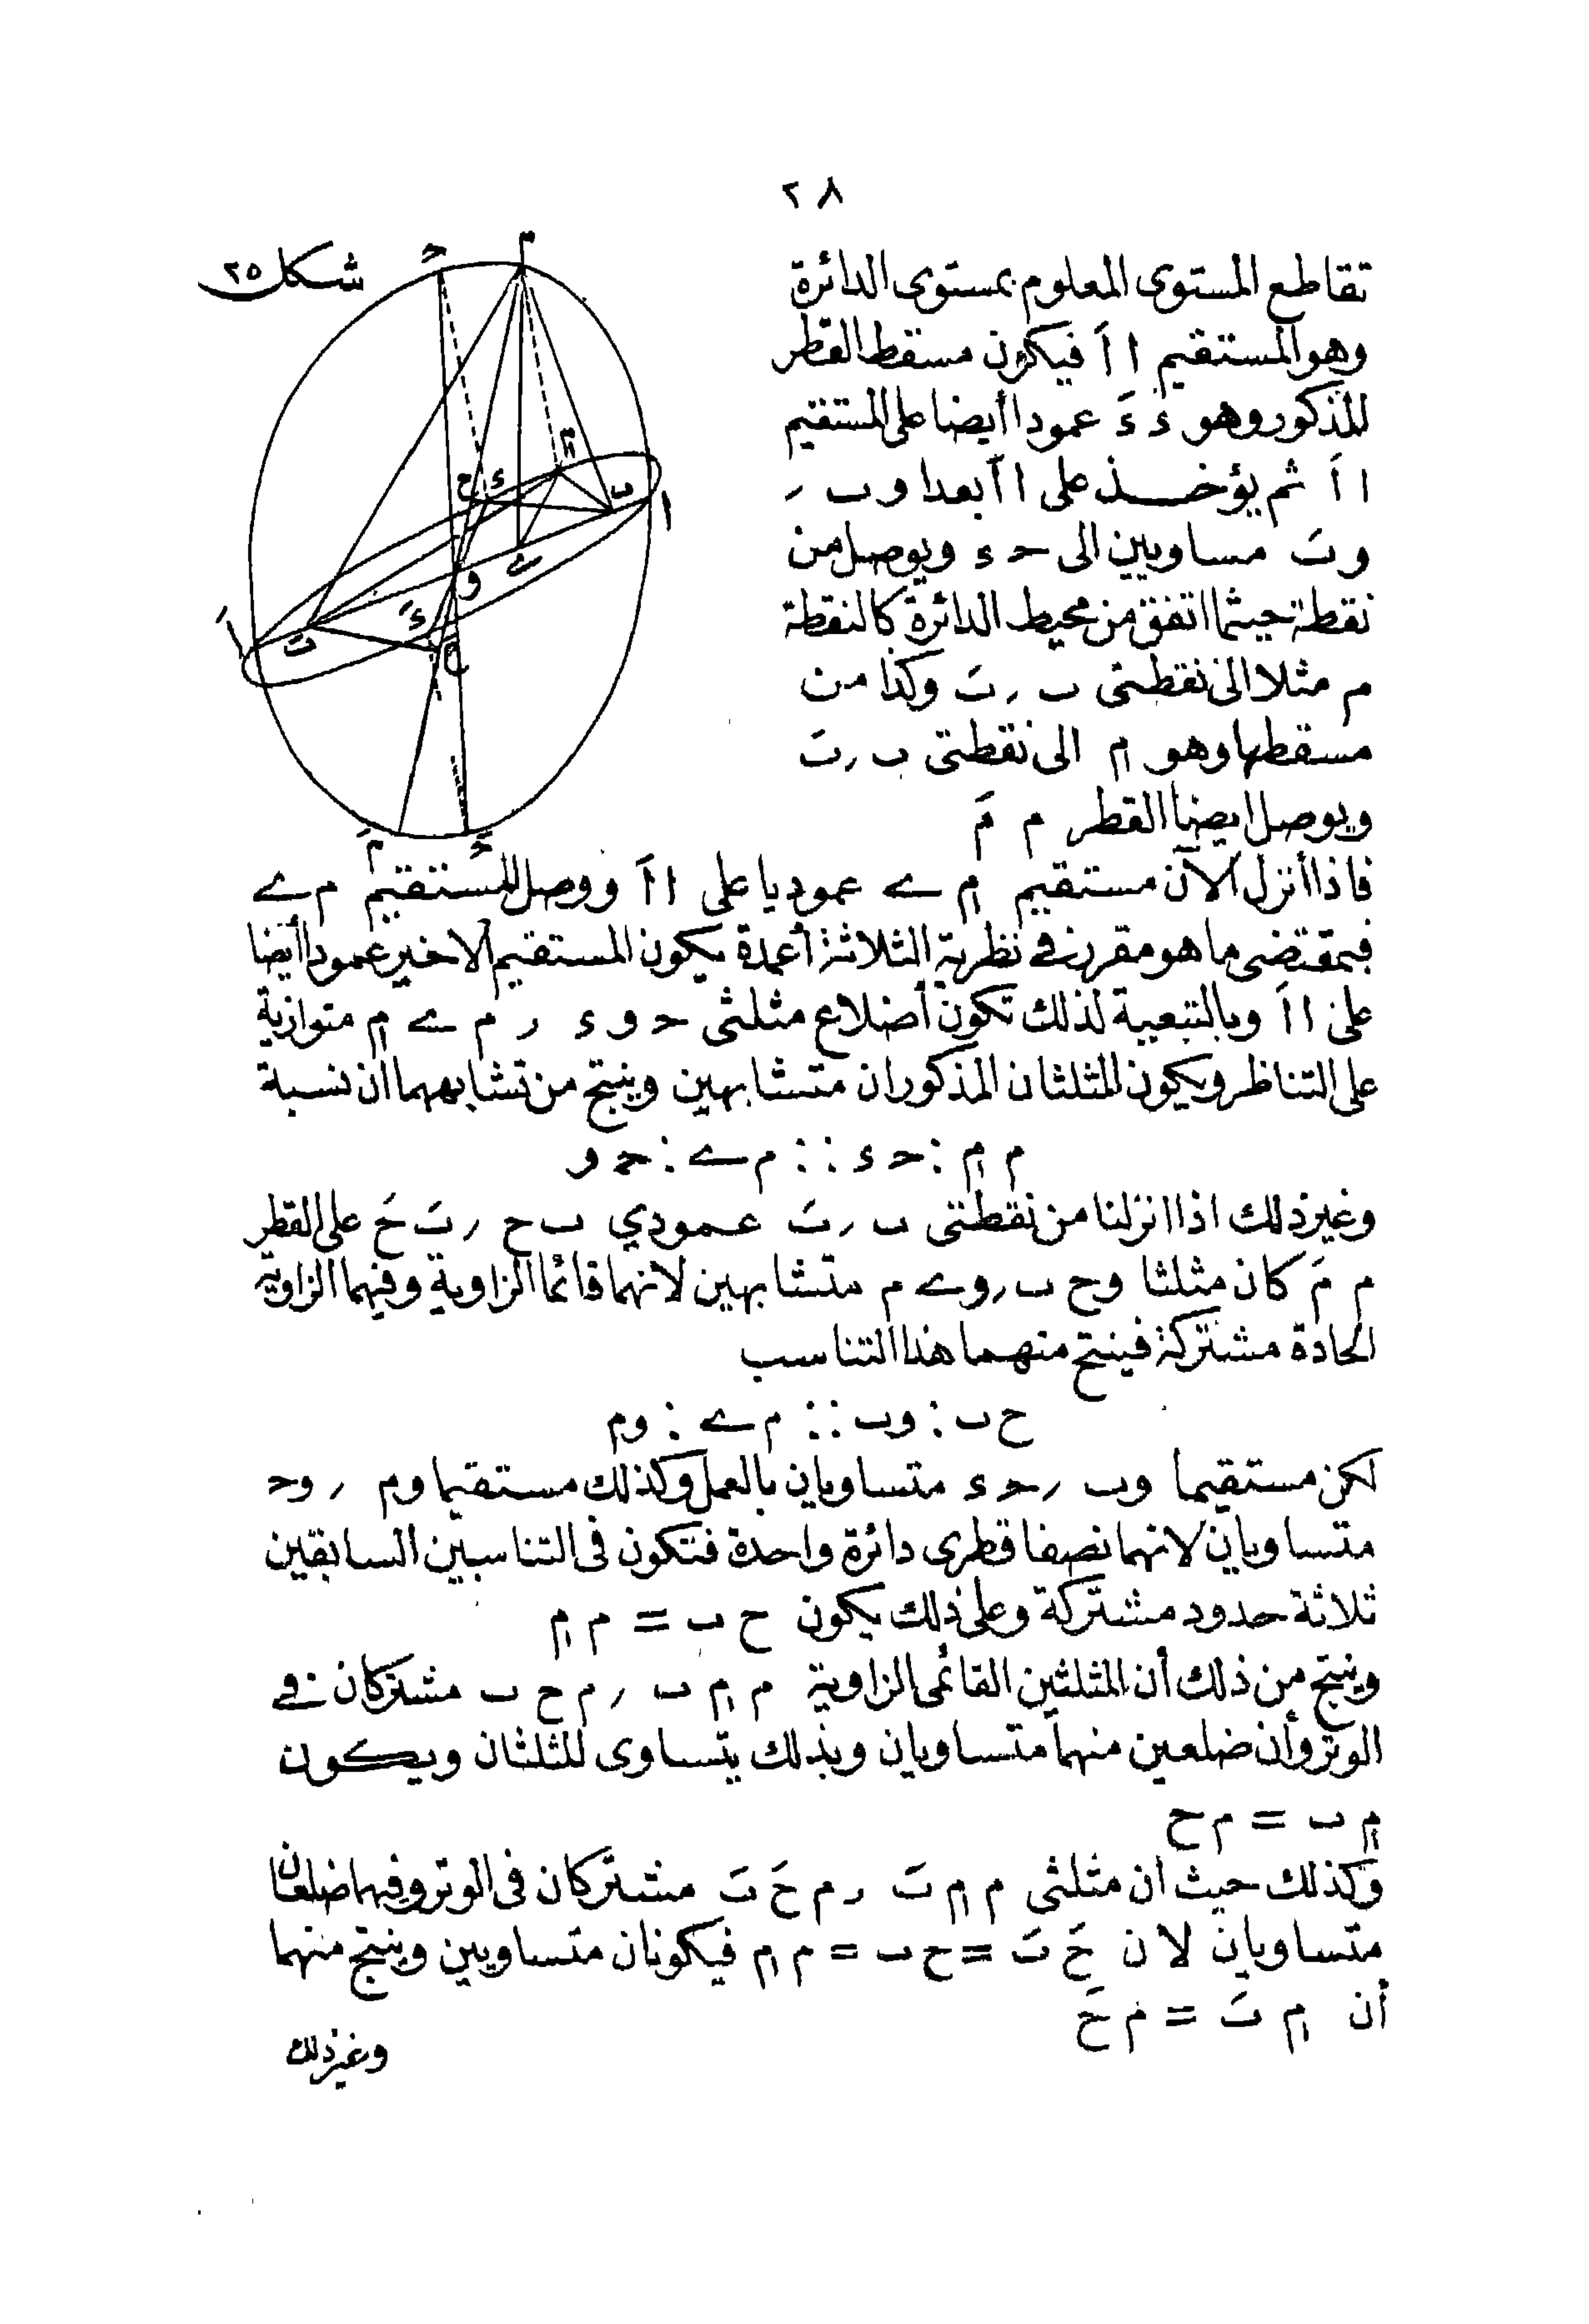 ٢٨
شكل ٢٥
تقاطع المستوى المعلوم بمستوى الدائرة
وهو المستقيم ا اَ فيكون مسقط القطر
المذكور وهو ء ءَ عمودا أيضا على المستقيم
ا اَ ثم يؤخذ على ا اَ بعدا و ب ر
و بَ مساويين الى حـ ء ويوصل من
نقطة حيثما اتفق من محيط الدائرة كالنقطة
م مثلا الى نقطتى ب ر بَ وكذا من
مسقطها وهو م̗ الى نقطتى ب ر بَ
ويوصل ايضا القطر م مَ
فاذا أنزل الآن مستقيم م̗ ے عموديا على ا اَ ووصل المستقيم م ے
فبمقتضى ما هو مقرر فى نظرية الثلاثة أعمدة يكون المستقيم الاخير عمودا أيضا
على ا اَ وبالتبعية لذلك تكون أضلاع مثلثى حـ و ء ر م ے م̗ متوازية
على التناظر ويكون المثلثان المذكوران متشابهين وينتج من تشابههما أن نسبة
م م̗ : حـ ء :: م ے : حـ و
وغير ذلك اذا انزلنا من نقطتى ب ر بَ عمودي ب ح ر بَ حَ على القطر
م مَ كان مثلثا و ح ب ر و ے م متشابهين لانهما قائما الزاوية وفيهما الزاوية
الحادة مشتركة فينتج منهما هذا التناسب
ح ب : و ب :: م ے : و م
لكن مستقيما و ب ر حـ ء متساويان بالعمل وكذلك مستقيما و م ر و حـ
متساويان لانهما نصفا قطرى دائرة واحدة فتكون فى التناسبين السابقين
ثلاثة حدود مشتركة وعلى ذلك يكون ح ب = م م̗
وينتج من ذلك أن المثلثين القائمى الزاوية م م̗ ب ر م ح ب مشتركان فى
الوتر وأن ضلعين منهما متساويان وبذلك يتساوى المثلثان ويكون
م̗ ب = م ح
وكذلك حيث أن مثلثى م م̗ بَ ر م حَ بَ مشتركان فى الوتر وفيهما ضلعان
متساويان لان حَ بَ = ح ب = م م̗ فيكونان متساويين وينتج منهما
أن م̗ بَ = م حَ
وغير ذلك